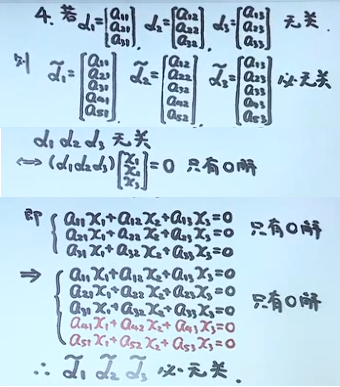 4. 若 α₁=[a₁₁ a₂₁ a₃₁], α₂=[a₁₂ a₂₂ a₃₂], α₃=[a₁₃ a₂₃ a₃₃] 无关
则 α̃₁=[a₁₁ a₂₁ a₃₁ a₄₁ a₅₁] α̃₂=[a₁₂ a₂₂ a₃₂ a₄₂ a₅₂] α̃₃=[a₁₃ a₂₃ a₃₃ a₄₃ a₅₃] 必无关
α₁ α₂ α₃ 无关
⟺ (α₁ α₂ α₃)[x₁ x₂ x₃]=0 只有0解
即 { a₁₁x₁+a₁₂x₂+a₁₃x₃=0
a₂₁x₁+a₂₂x₂+a₂₃x₃=0 只有0解
a₃₁x₁+a₃₂x₂+a₃₃x₃=0
⇒ { a₁₁x₁+a₁₂x₂+a₁₃x₃=0
a₂₁x₁+a₂₂x₂+a₂₃x₃=0
a₃₁x₁+a₃₂x₂+a₃₃x₃=0 只有0解
a₄₁x₁+a₄₂x₂+a₄₃x₃=0
a₅₁x₁+a₅₂x₂+a₅₃x₃=0
∴ α̃₁ α̃₂ α̃₃ 必无关.